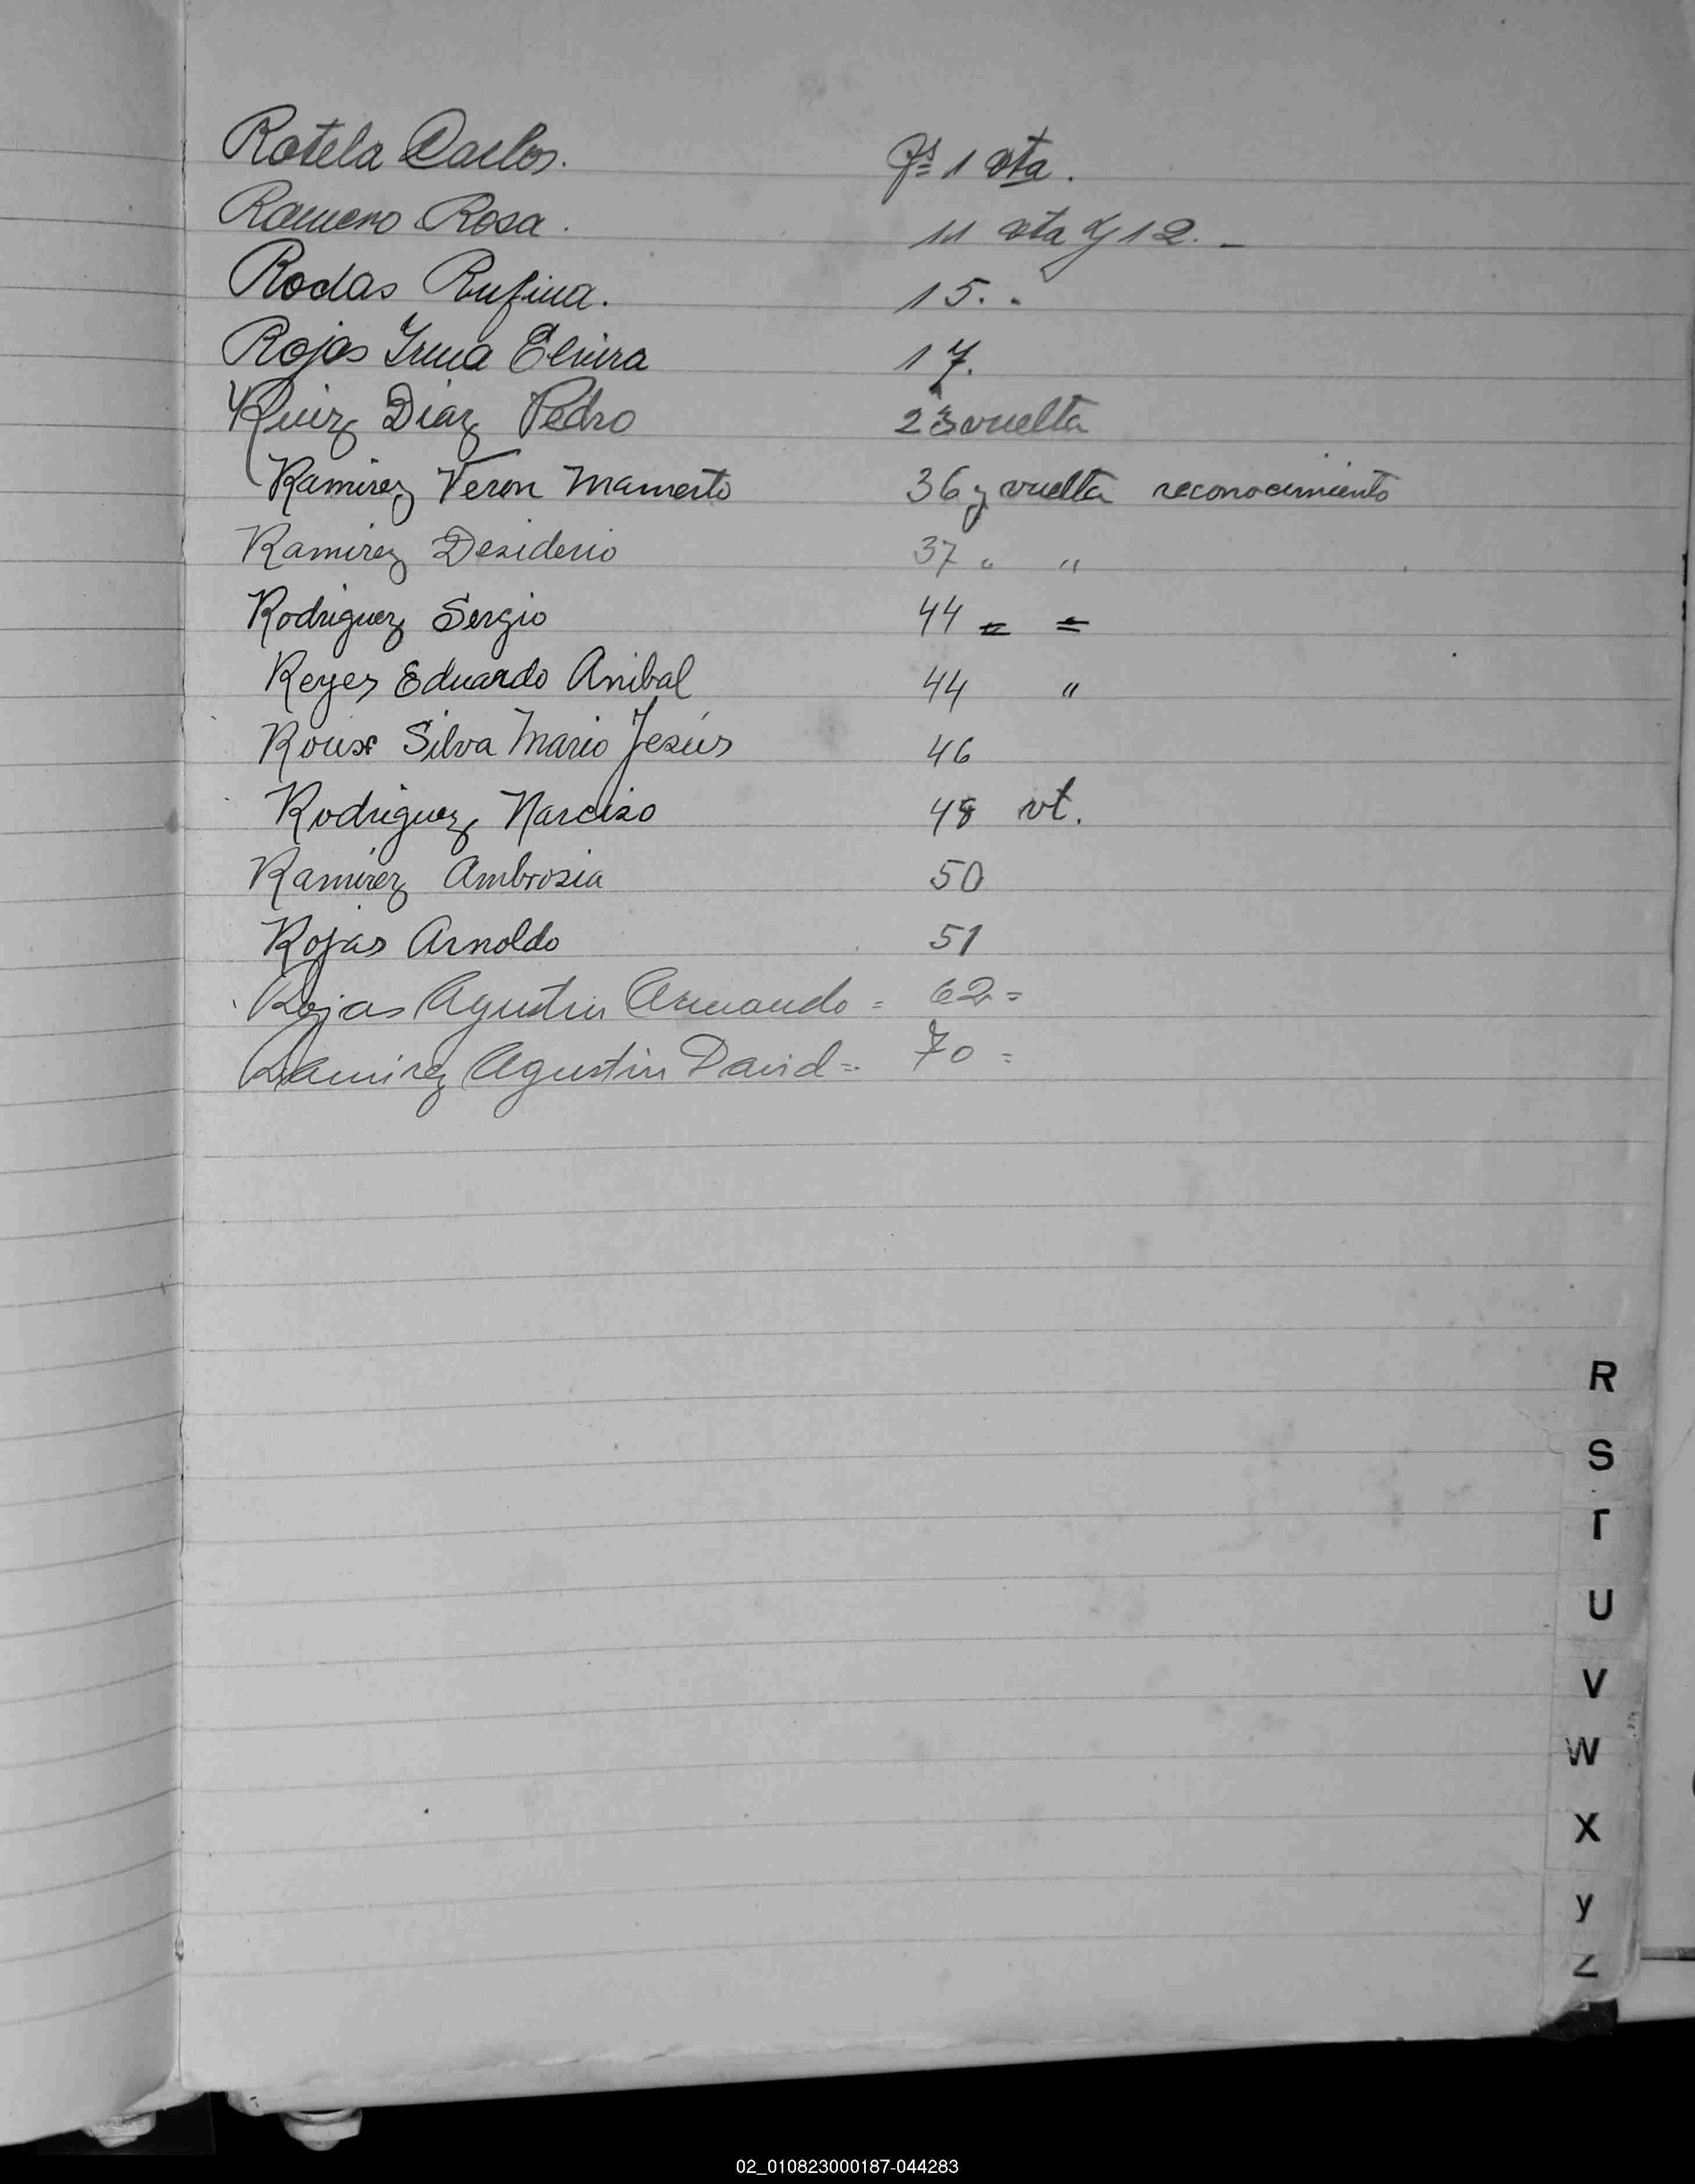 Rotela Carlos. fs 1 vta.
Romero Rosa. 11 vta y 12. _
Rodas Rufina. 15. .
Rojas Irma Elvira 17.
Ruiz Diaz Pedro 23 vuelta
Ramirez Veron Mamerto 36 y vuelta reconocimiento
Ramirez Desiderio 37 " "
Rodriguez Sergio 44 " =
Reyes Eduardo Anibal 44 "
Roux Silva Mario Jesús 46
Rodriguez Narciso 48 vt.
Ramírez Ambrosia 50
Rojas Arnoldo 51
Rojas Agustin Armando = 62 =
Ramirez Agustin David = 70 =
R
S
T
U
V
W
X
y
Z
02_010823000187-044283